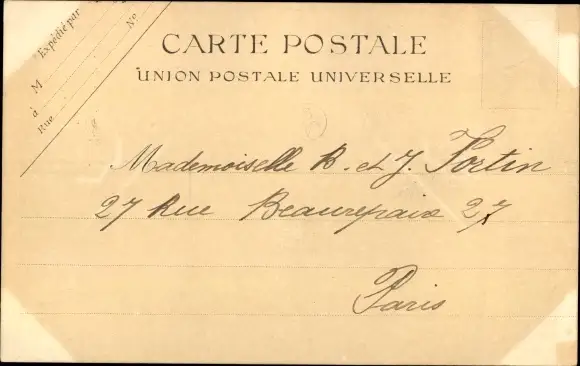 Expédié par
M
à
Rue
No
CARTE POSTALE
UNION POSTALE UNIVERSELLE
Mademoiselle B. et J. Fortin
27 Rue Beaurepaire 27
Paris